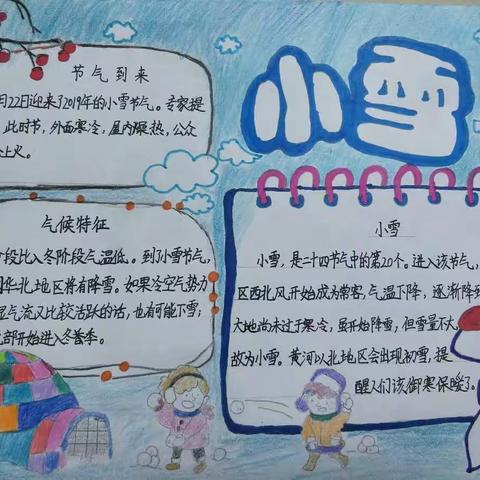 小雪
节气到来
月22日迎来了2019年的小雪节气。专家提
此时节，外面寒冷，屋内燥热，公众
上火。
气候特征
阶段比入冬阶段气温低。到了小雪节气，
华北地区将有降雪。如果冷空气势力
湿气流又比较活跃的话，也有可能下雪；
北部开始进入冬季。
小雪
小雪，是二十四节气中的第20个。进入该节气，
区西北风开始成为常客，气温下降，逐渐降到
大地尚未过于寒冷，虽开始降雪，但雪量不大，
故为小雪。黄河以北地区会出现初雪，提
醒人们该御寒保暖了。